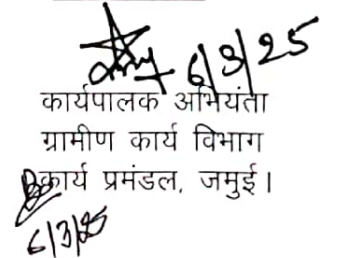 6/3/25
कार्यपालक अभियंता
ग्रामीण कार्य विभाग
कार्य प्रमंडल, जमुई।
6/3/25